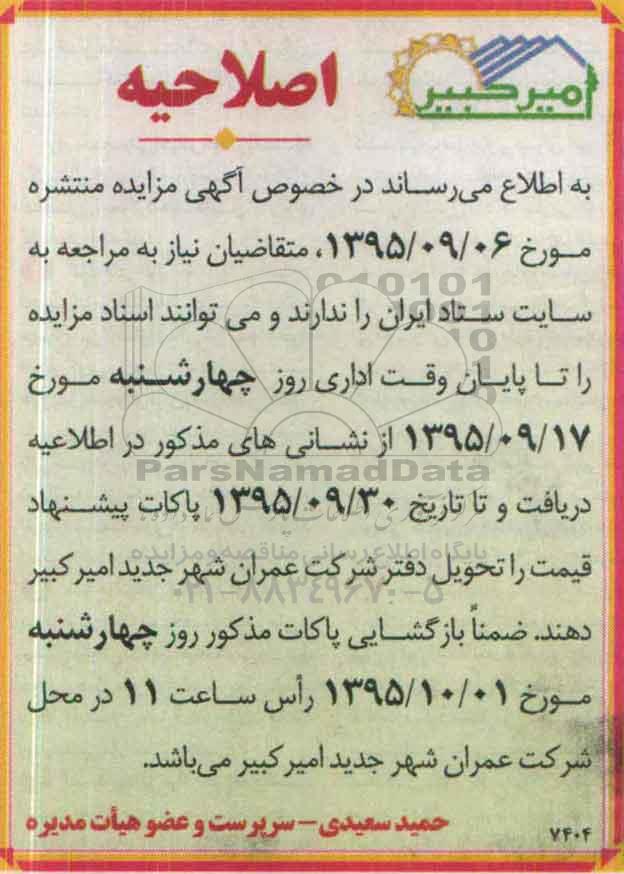 امیرکبیر
اصلاحیه
به اطلاع می‌رساند در خصوص آگهی مزایده منتشره
مورخ ۱۳۹۵/۰۹/۰۶، متقاضیان نیاز به مراجعه به
سایت ستاد ایران را ندارند و می توانند اسناد مزایده
را تا پایان وقت اداری روز چهارشنبه مورخ
۱۳۹۵/۰۹/۱۷ از نشانی های مذکور در اطلاعیه
ParsNamadData
دریافت و تا تاریخ ۱۳۹۵/۰۹/۳۰ پاکات پیشنهاد
پایگاه اطلاع رسانی مناقصه و مزایده
قیمت را تحویل دفتر شرکت عمران شهر جدید امیر کبیر
۰۲۱-۸۸۳۴۹۶۷۰-۵
دهند. ضمناً بازگشایی پاکات مذکور روز چهارشنبه
مورخ ۱۳۹۵/۱۰/۰۱ رأس ساعت ۱۱ در محل
شرکت عمران شهر جدید امیر کبیر می‌باشد.
حمید سعیدی – سرپرست و عضو هیأت مدیره
۷۴۰۴